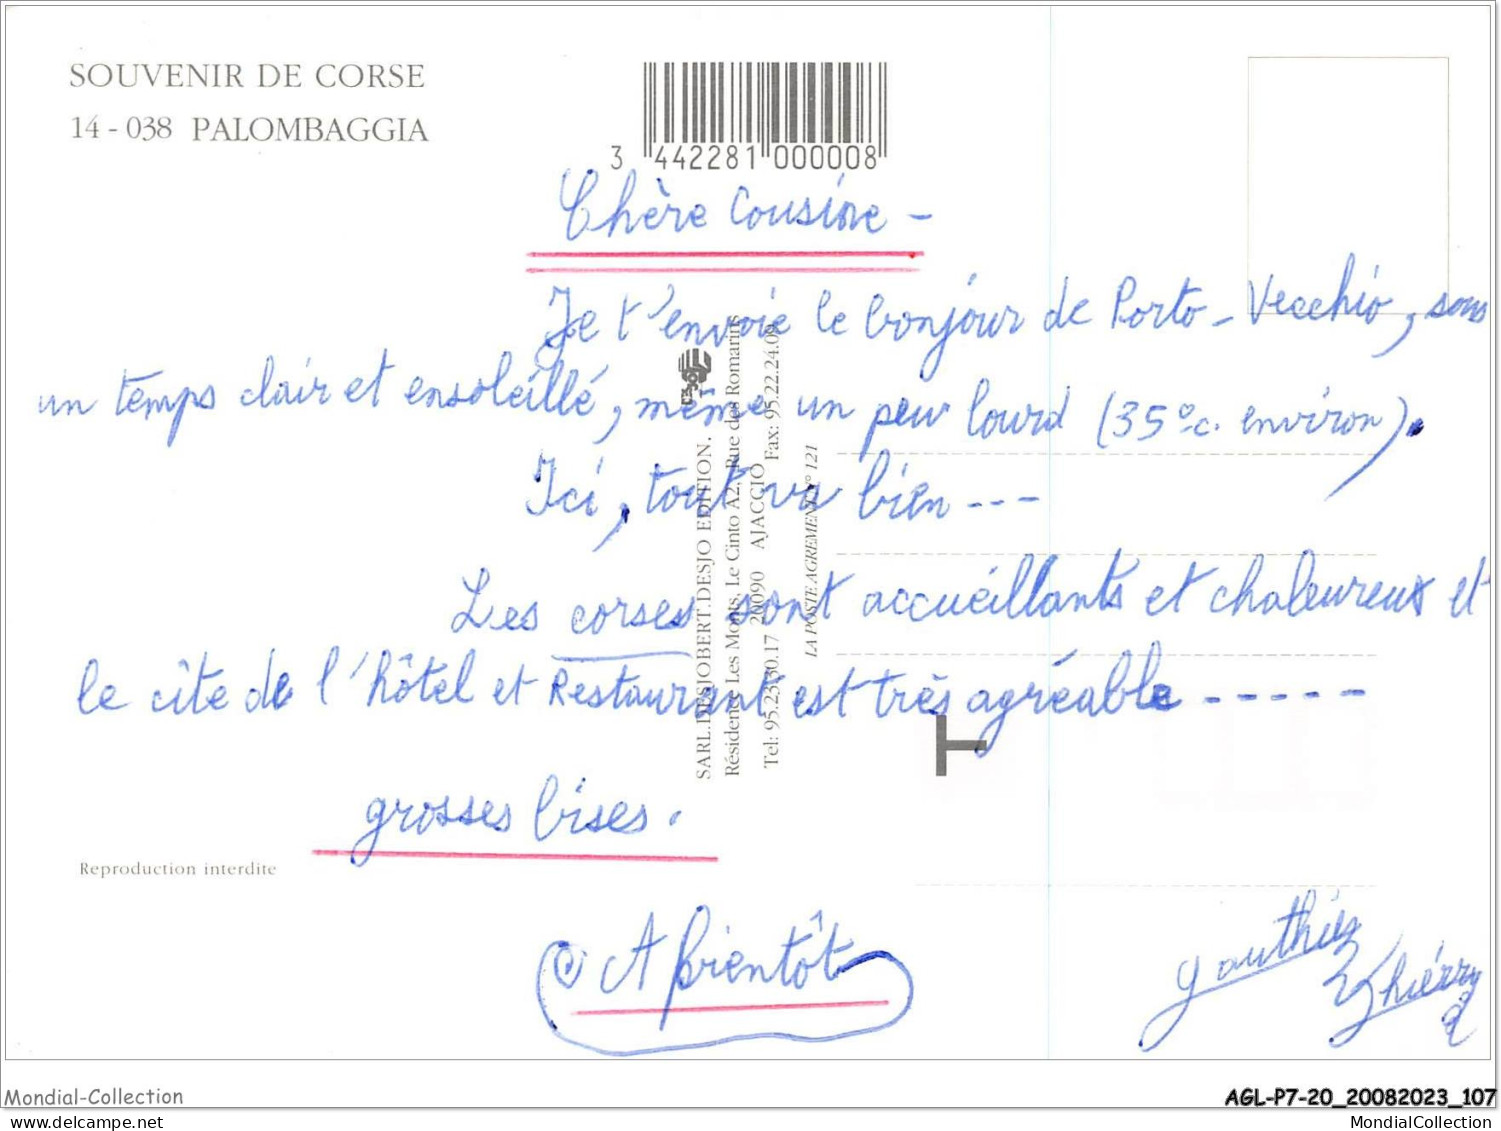 SOUVENIR DE CORSE
14 - 038 PALOMBAGGIA
3 442281 000008
Chère Cousine -
Je t'envoie le bonjour de Porto-Vecchio, sous
un temps clair et ensoleillé, même un peu lourd (35°c. environ).
Ici, tout va bien ---
Les corses sont accueillants et chaleureux et
le cîte de l'hôtel et Restaurant est très agréable -----
grosses bises.
A Bientôt
Gauthier
Thiérry
SARL.DESJOBERT.DESJO EDITION.
Résidence Les Monts, Le Cinto A2, Rue des Romarins
20090 AJACCIO
Tel: 95.23.30.17 Fax: 95.22.24.09
LA POSTE AGREMENT N° 121
T
Reproduction interdite
Mondial-Collection
AGL-P7-20_20082023_107
MondialCollection.com
https://MondialCollection.delcampe.net